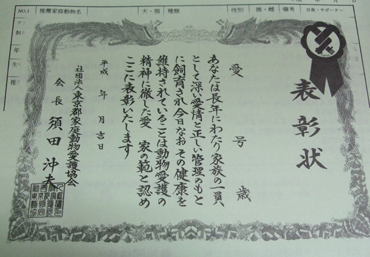 NO.1
推薦家庭動物名
犬・猫
種類
性別
雌・雄
表彰状
愛 号 歳
あなたは長年にわたり家族の一員
として深い愛情と正しい管理のもと
に飼育され今日なおその健康を
維持されていることは動物愛護の
精神に徹した愛 家の範と認め
ここに表彰いたします
平成 年 月 吉日
社団法人東京都家庭動物愛護協会
会長 須田沖夫